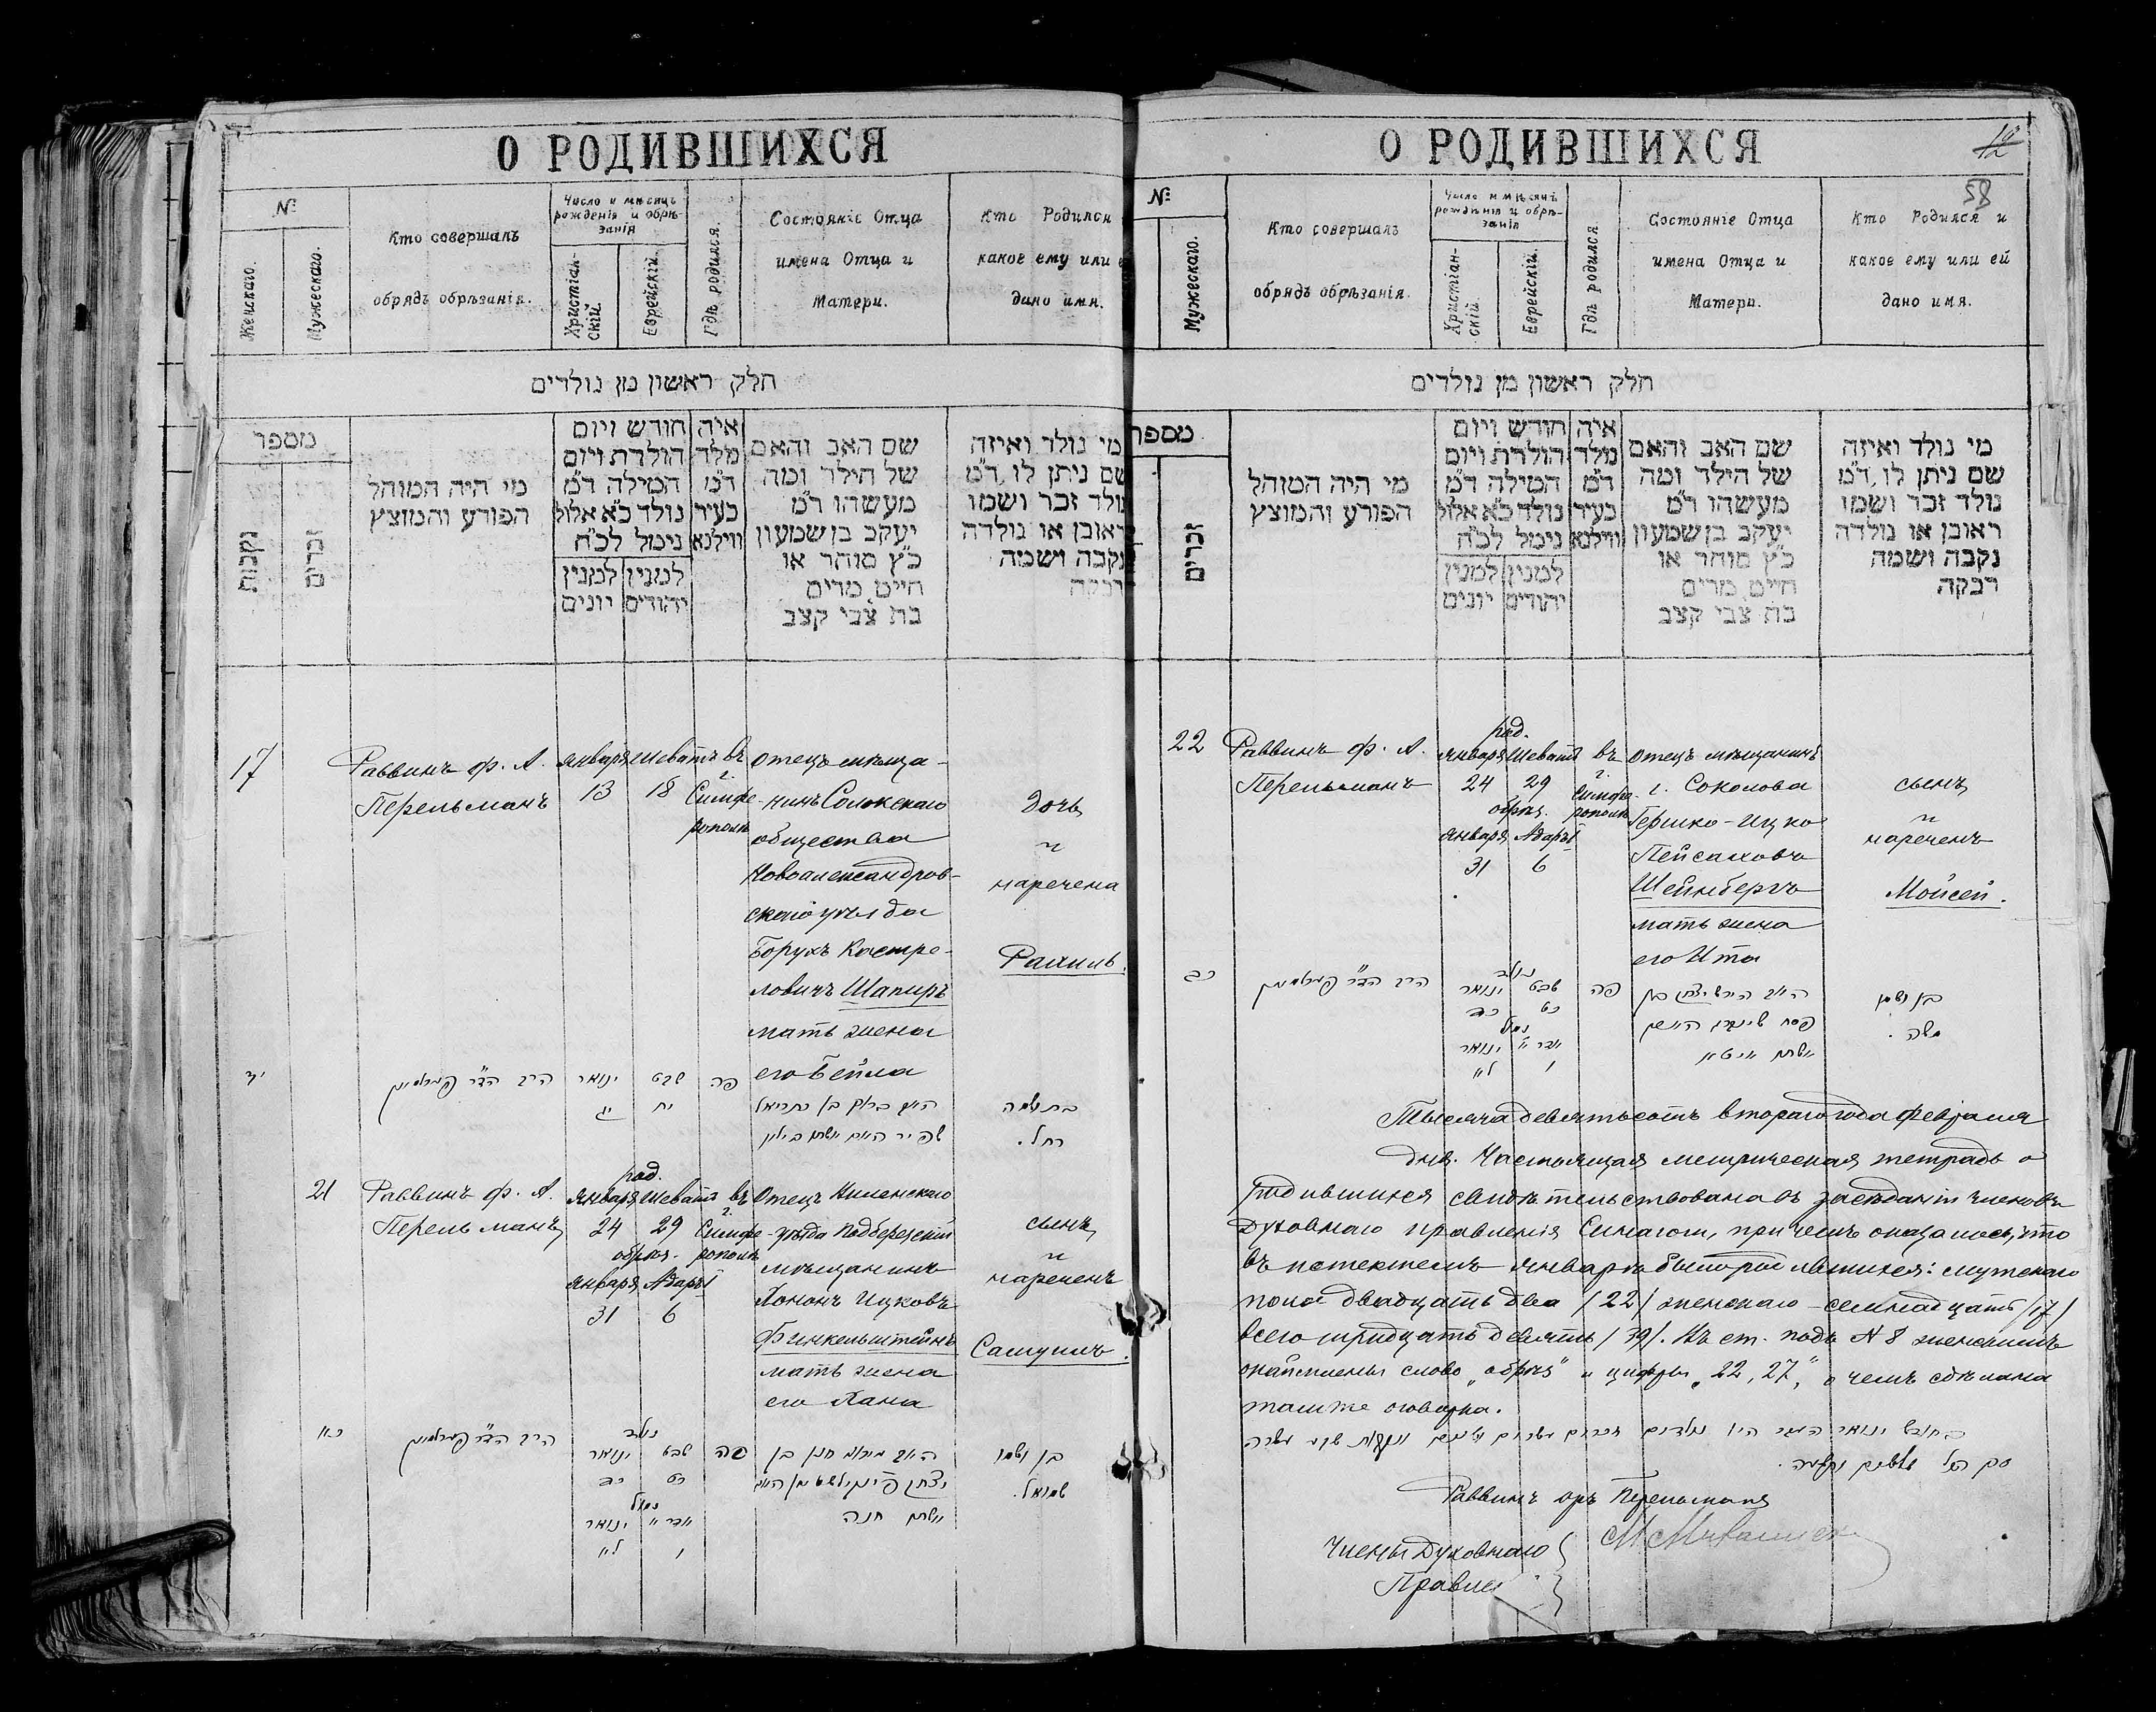 О РОДИВШИХСЯ
№
Женскаго.
Мужескаго.
Кто совершалъ
обрядъ обрѣзанія.
Число и мѣсяцъ
рожденія и обрѣ-
занія
Христіан-
скій.
Еврейскій.
Гдѣ родился.
Состояніе Отца
имена Отца и
Матери.
Кто Родился
какое ему или е
дано имя.
חלק ראשון מן נולדים
מספר
נקבות
זכרים
מי היה המוהל
הפורע והמוצץ
חודש ויום
הולדת ויום
המילה ד״מ
נולד כ״א אלול
נימל לכ״ח
למנין
יהודים
למנין
יונים
איה
נולד
ד״מ
בעיר
ווילנא
שם האב והאם
של הילד ומה
מעשהו ד״מ
יעקב בן שמעון
כ״ץ סוחר או
חייט, מרים
בת צבי קצב
מי נולד ואיזה
שם ניתן לו, ד״מ
נולד זכר ושמו
ראובן או נולדה
נקבה ושמה
רבקה
17
Раввинъ ф. А.
Перельманъ
Января
13
Шеватъ
18
въ
г.
Симфе-
рополѣ
Отецъ мѣща-
нинъ Солокскаго
общества
Новоалександров-
скаго уѣзда
Борухъ
ловичъ Шапиръ
мать жена
его Бейла
Дочь
и
наречена
Рахиль.
הרב הד״ר פערלמאן
ינואר
יג
שבט
יח
פה
בת ושמה
רחל.
21
Раввинъ ф. А.
Перельманъ
род.
Января Шеватъ
24 29
обрѣз.
Января Адаръ I
31 6
въ
г.
Симфе-
рополѣ
Отецъ Виленскаго
уѣзда Подберезскій
мѣщанинъ
Хононъ Ицковъ
Финкельштейнъ
мать жена
его Хана
сынъ
и
нареченъ
Самуилъ.
הרב הד״ר פערלמאן
נולד
ינואר שבט
כד כט
נמול
ינואר
ל״א ו
פה
אשתו חנה
בן ושמו
שמואל.
О РОДИВШИХСЯ
12
58
№
Мужескаго.
Кто совершалъ
обрядъ обрѣзанія.
Число и мѣсяцъ
рожденія и обрѣ-
занія
Христіан-
скій.
Еврейскій.
Гдѣ родился.
Состояніе Отца
имена Отца и
Матери.
Кто Родился и
какое ему или ей
дано имя.
חלק ראשון מן נולדים
מספר
זכרים
מי היה המוהל
הפורע והמוצץ
חודש ויום
הולדת ויום
המילה ד״מ
נולד כ״א אלול
נימל לכ״ח
למנין
יהודים
למנין
יונים
איה
נולד
ד״מ
בעיר
ווילנא
שם האב והאם
של הילד ומה
מעשהו ד״מ
יעקב בן שמעון
כ״ץ סוחר או
חייט, מרים
בת צבי קצב
מי נולד ואיזה
שם ניתן לו, ד״מ
נולד זכר ושמו
ראובן או נולדה
נקבה ושמה
רבקה
22
Раввинъ ф. А.
Перельманъ
род.
Января Шеватъ
24 29
обрѣз.
Января Адаръ I
31 6
въ
г.
Симфе-
рополѣ
Отецъ мѣщанинъ
г. Соколова
Гершко-Ицко
Пейсаховъ
Шейнбергъ
мать жена
его Ита
сынъ
и
нареченъ
Мойсей.
כב
הרב הד״ר פערלמאן
נולד
ינואר שבט
כד כט
נמול
ינואר
ל״א ו
פה
בן ושמו
משה.
Тысяча девятьсотъ второго года февраля
дня. Настоящая метрическая тетрадь о
родившихся свидѣтельствована въ засѣданіи членовъ
Духовнаго Правленія Синагоги, при чемъ оказалось, что
въ истекшемъ январѣ было родившихся: мужскаго
пола двадцать два /22/ женскаго - семнадцать /17/
всего тридцать девять /39/. Въ ст. подъ № 8 женскимъ
слово „обрѣз“ и цифры „22, 27“, о чемъ сдѣлана
также оговорка.
Раввинъ Перельманъ
Члены Духовнаго
Правле